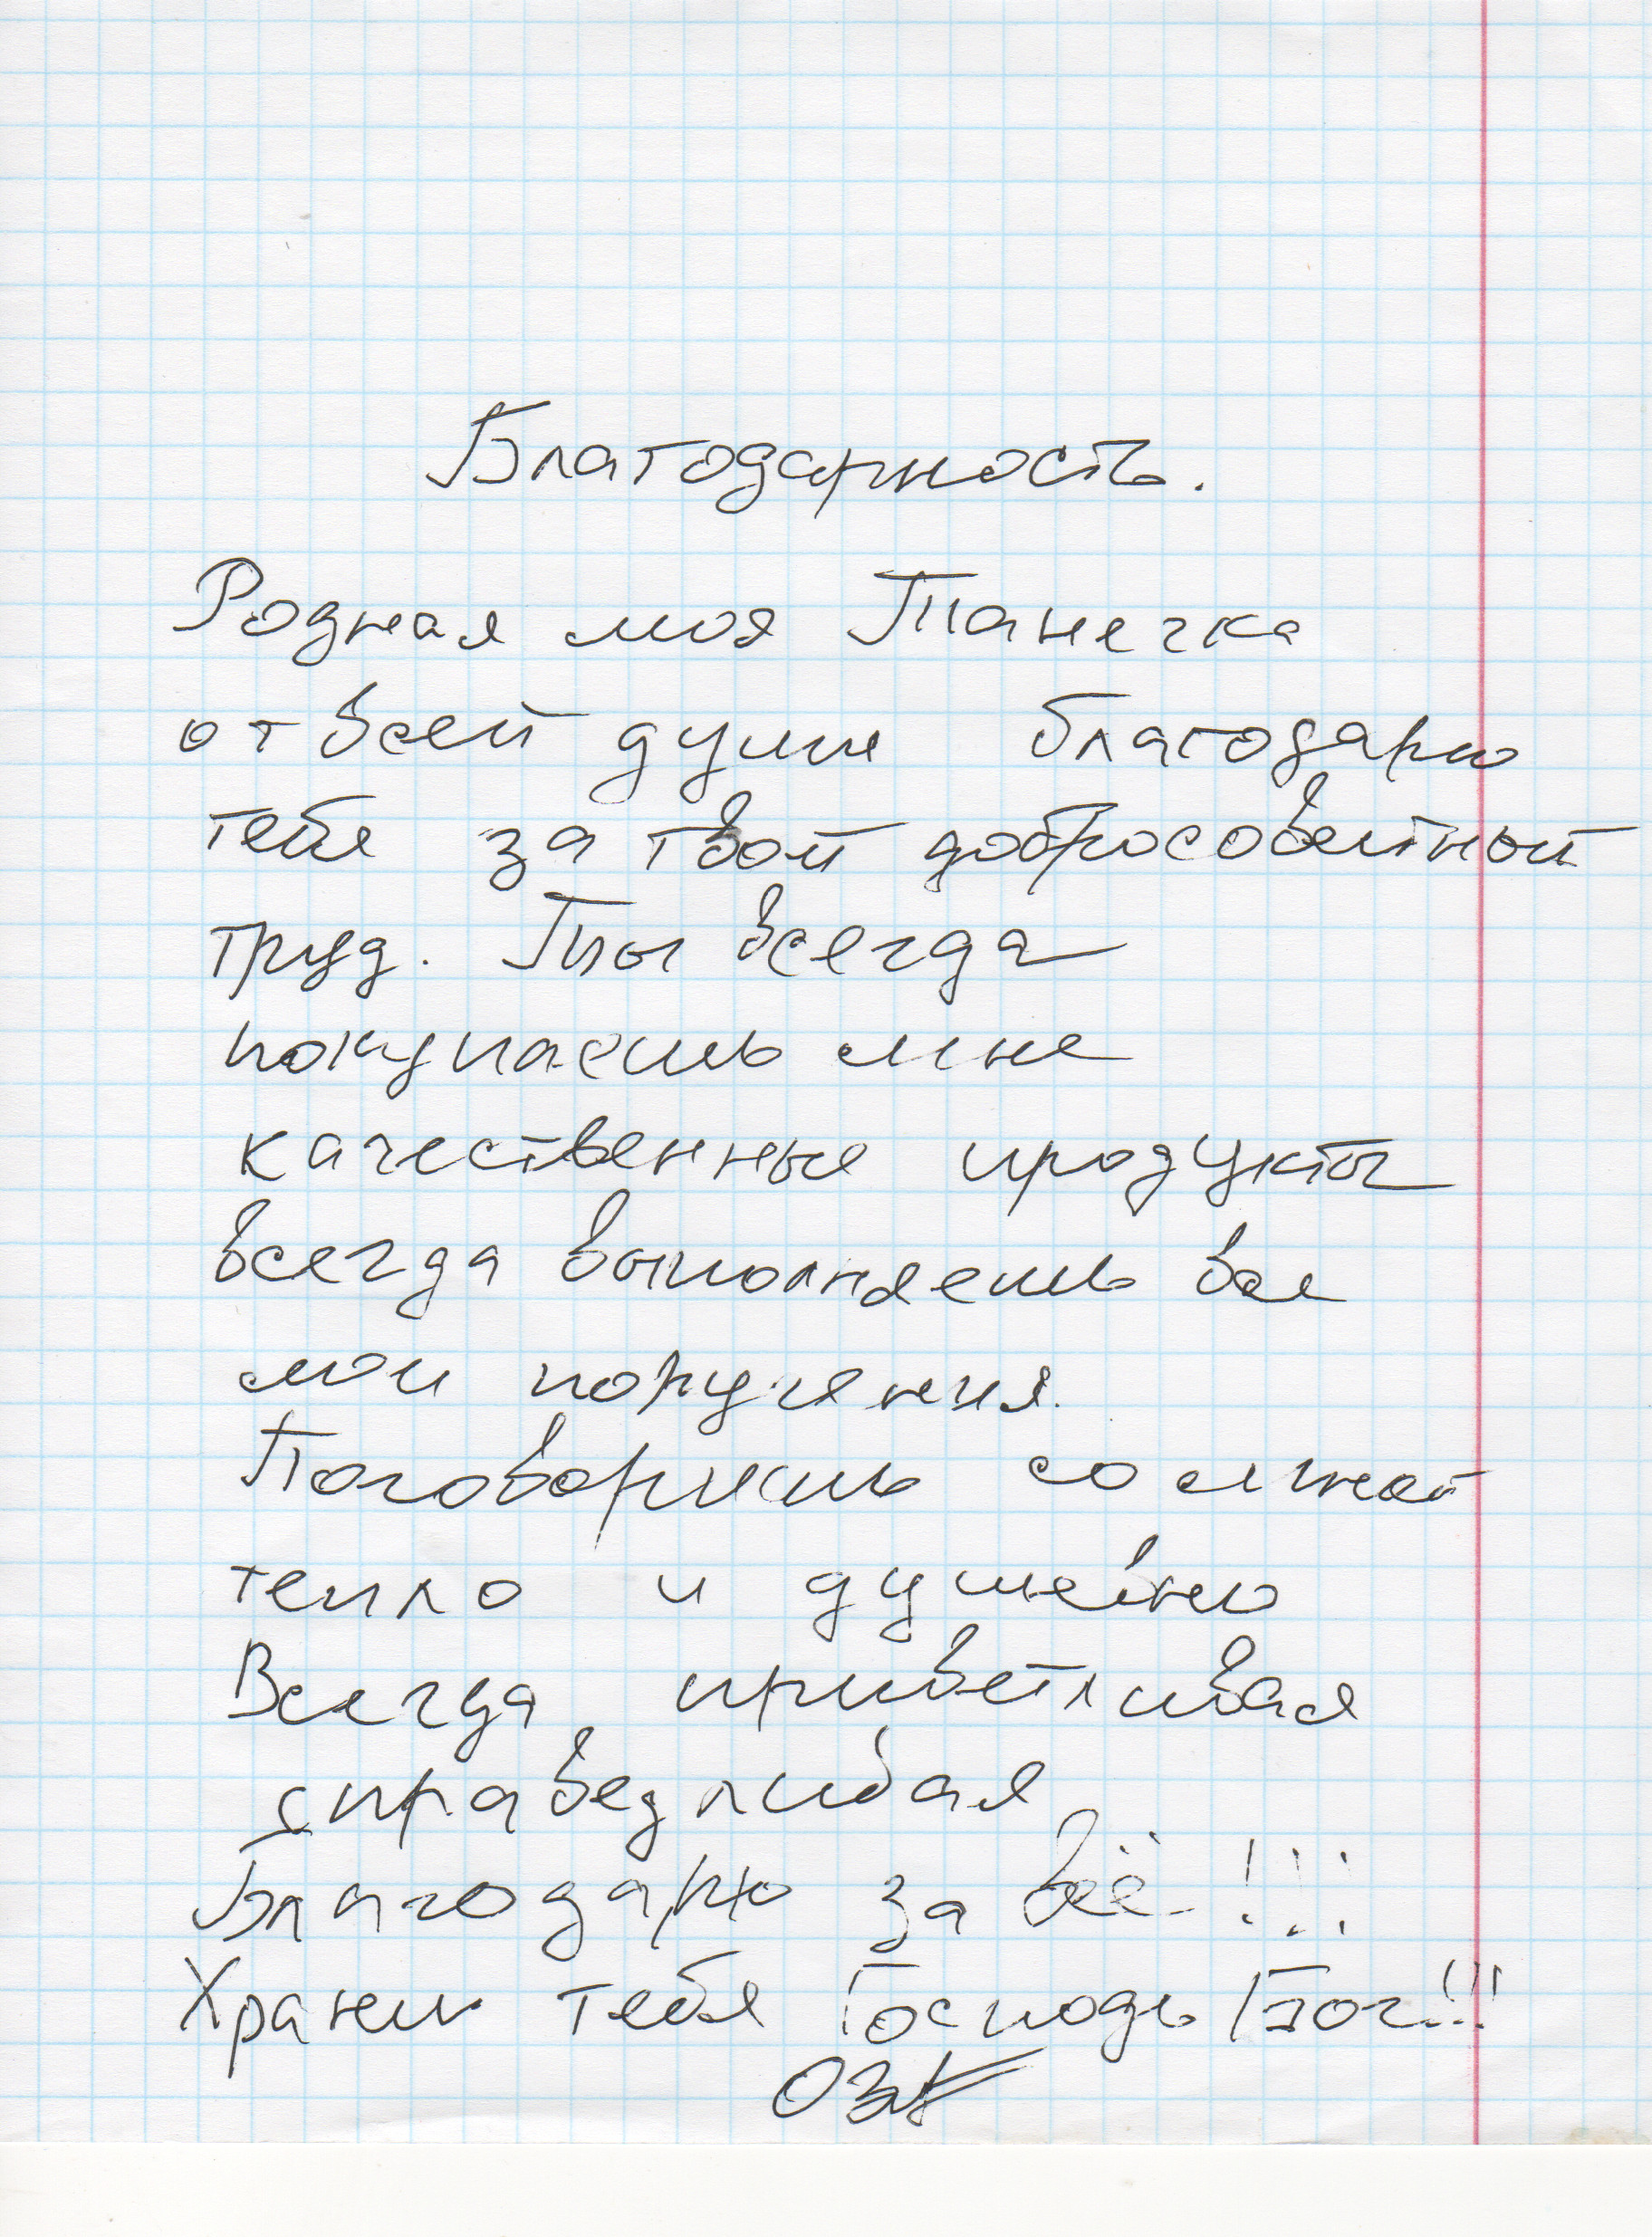 Благодарность.
Родная моя Танечка
от всей души благодарю
тебя за твой добросоветный
труд. Ты всегда
покупаешь мне
качественные продукты
всегда выполняешь все
мои поручения.
Поговоришь со мной
тепло и душевно
Всегда приветливая
справедливая
Благодарю за всё!!!
Храни тебя Господь Бог!!!